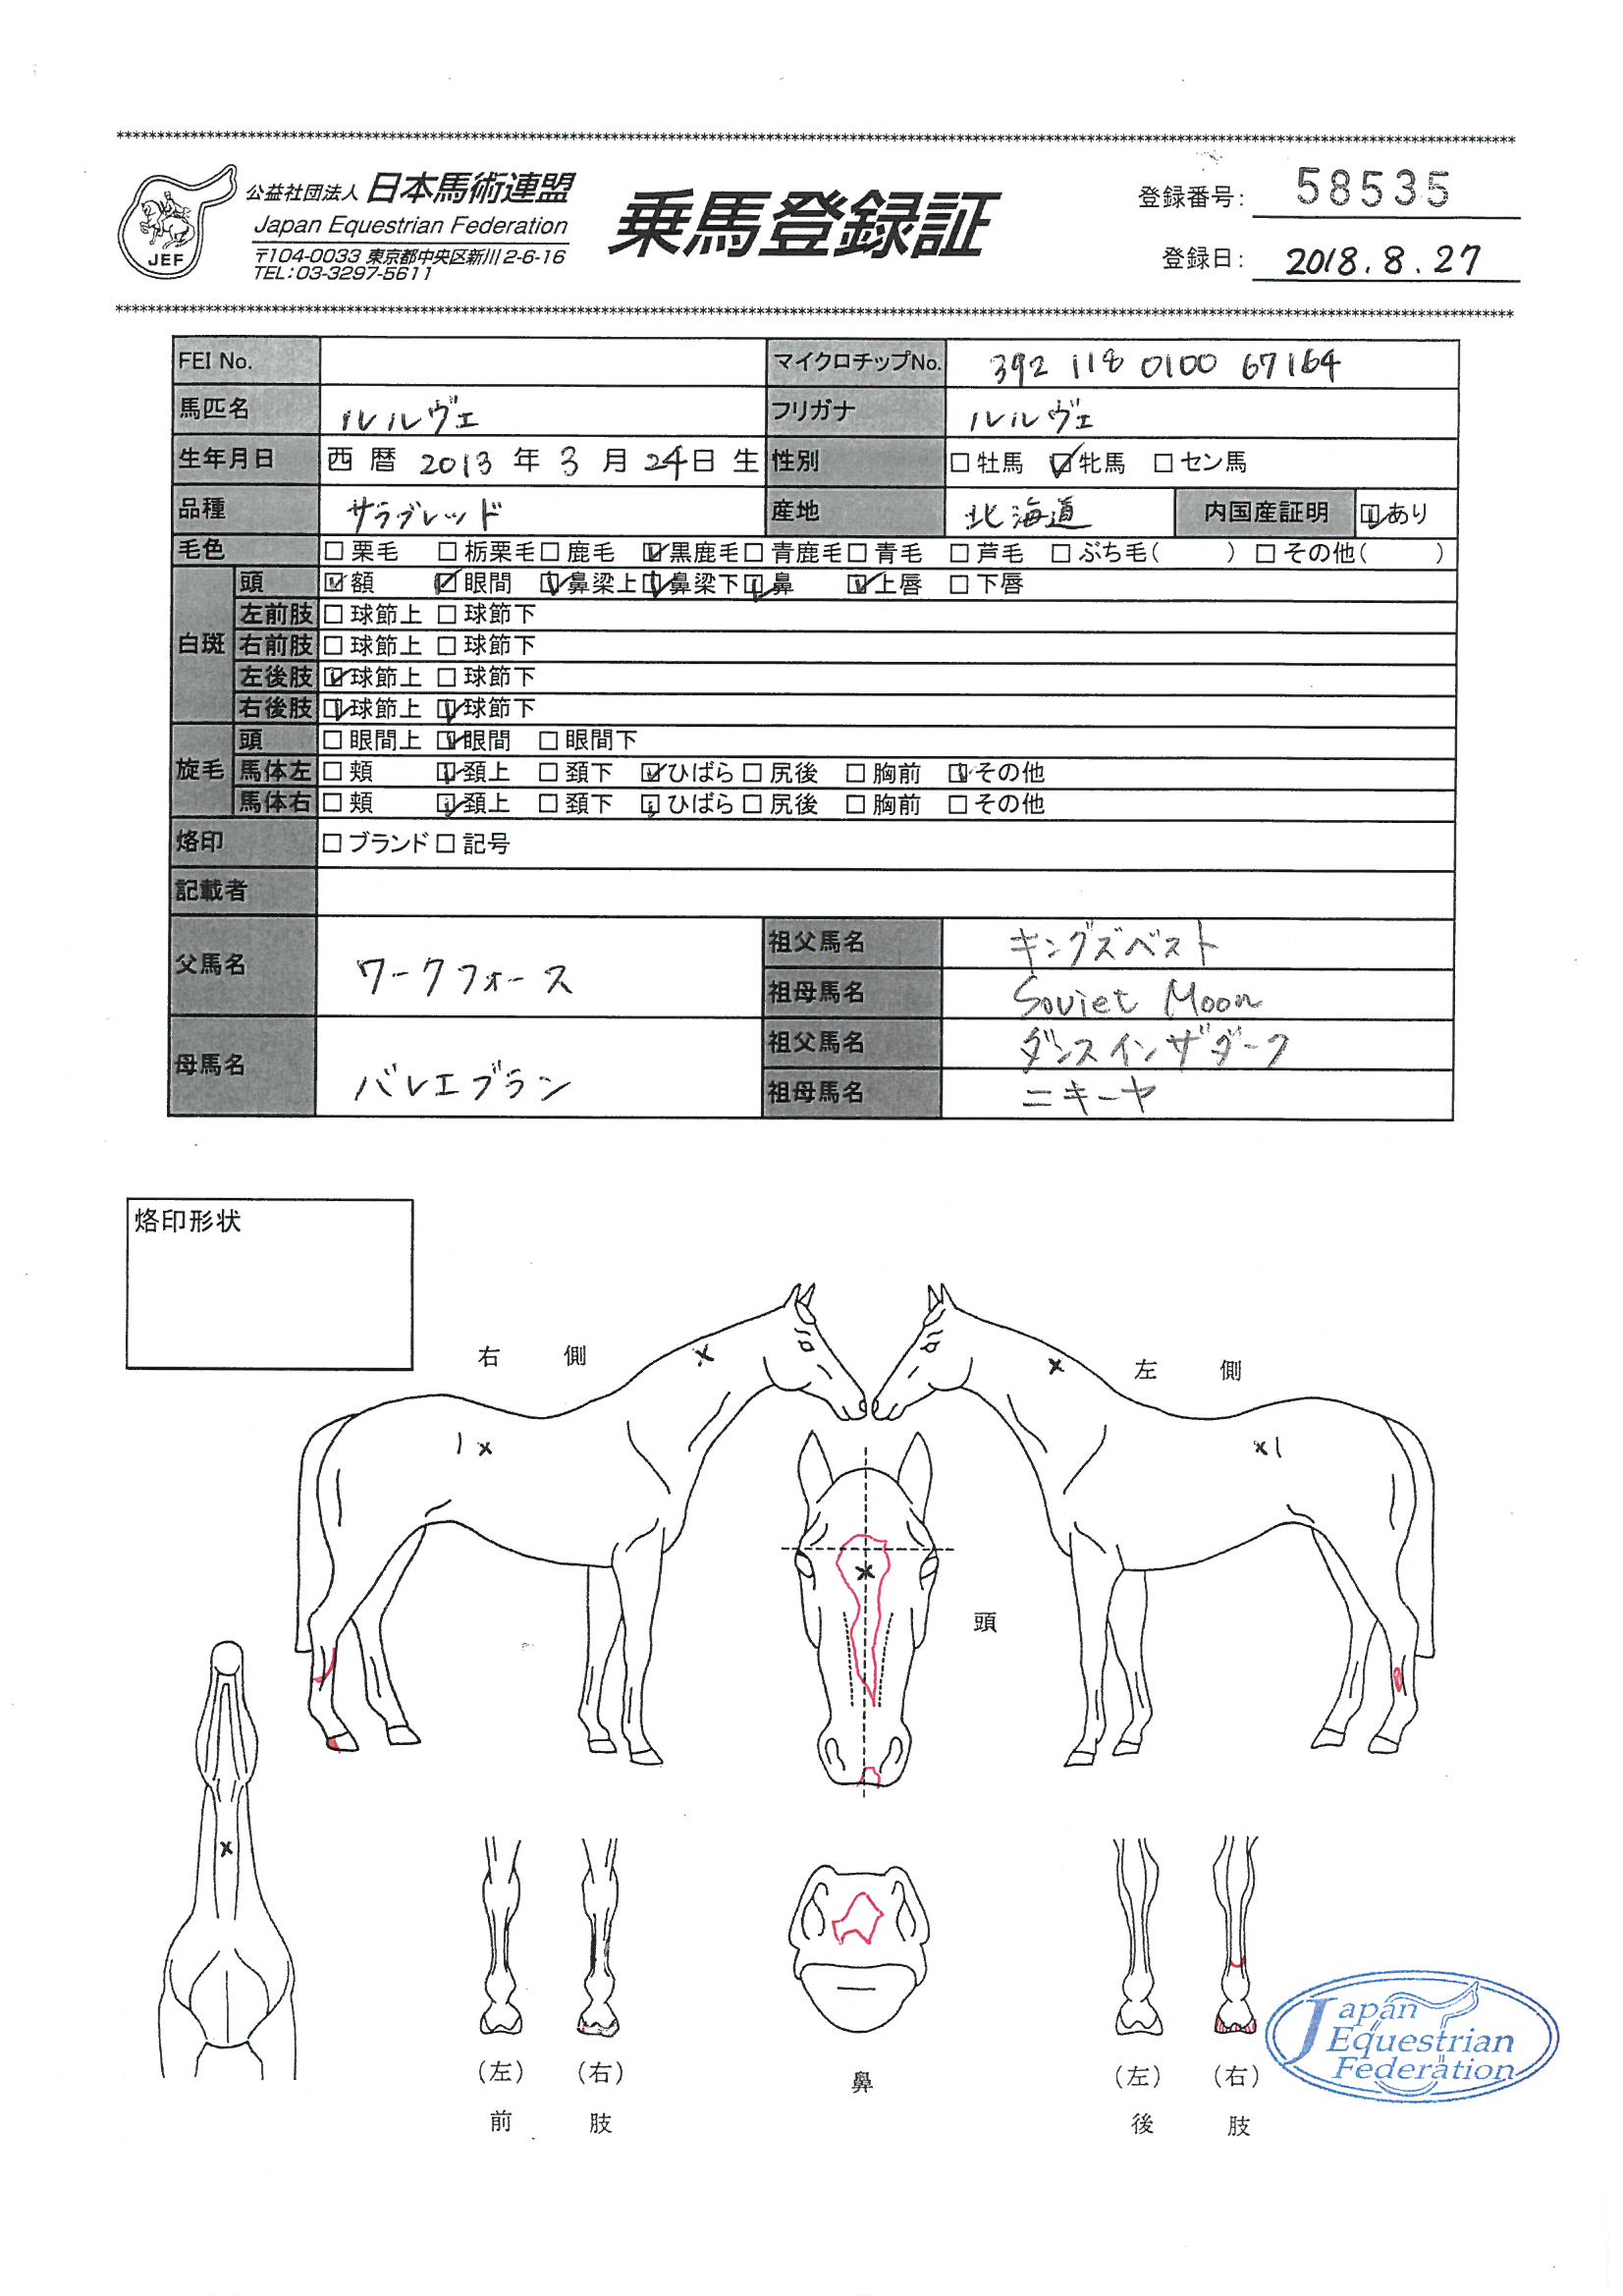 公益社団法人 日本馬術連盟
Japan Equestrian Federation
〒104-0033 東京都中央区新川2-6-16
TEL:03-3297-5611
JEF
乗馬登録証
登録番号: 58535
登録日: 2018.8.27
FEI No. マイクロチップNo. 392 118 0100 67164
馬匹名 ルルヴェ フリガナ ルルヴェ
生年月日 西暦 2013 年 3 月 24日 生 性別 □牡馬 ☑牝馬 □セン馬
品種 サラブレッド 産地 北海道 内国産証明 ☑あり
毛色 □栗毛 □栃栗毛 □鹿毛 ☑黒鹿毛 □青鹿毛 □青毛 □芦毛 □ぶち毛( ) □その他( )
白斑 頭 ☑額 ☑眼間 ☑鼻梁上 ☑鼻梁下 ☑鼻 ☑上唇 □下唇
左前肢 □球節上 □球節下
右前肢 □球節上 □球節下
左後肢 ☑球節上 □球節下
右後肢 ☑球節上 ☑球節下
旋毛 頭 □眼間上 ☑眼間 □眼間下
馬体左 □頬 ☑頚上 □頚下 ☑ひばら □尻後 □胸前 ☑その他
馬体右 □頬 ☑頚上 □頚下 ☑ひばら □尻後 □胸前 □その他
烙印 □ブランド □記号
記載者
父馬名 ワークフォース 祖父馬名 キングズベスト
祖母馬名 Soviet Moon
母馬名 バレエブラン 祖父馬名 ダンスインザダーク
祖母馬名 ニキーヤ
烙印形状
右側
左側
頭
鼻
(左) (右)
前肢
(左) (右)
後肢
Japan
Equestrian
Federation